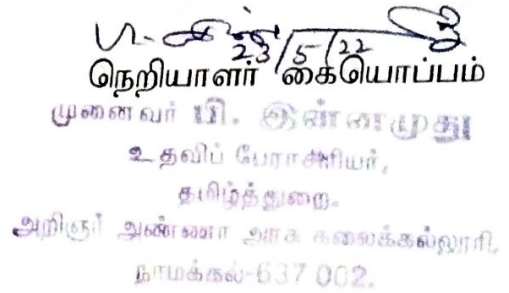 23/5/22
நெறியாளர் கையொப்பம்
முனைவர் பி. இன்னமுது
உதவிப் பேராசிரியர்,
தமிழ்த்துறை.
அறிஞர் அண்ணா அரசு கலைக்கல்லூரி,
நாமக்கல்-637 002.